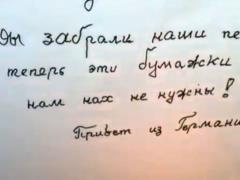 Вы забрали наши
теперь эти бумажки
нам нах не нужны!
Привет из